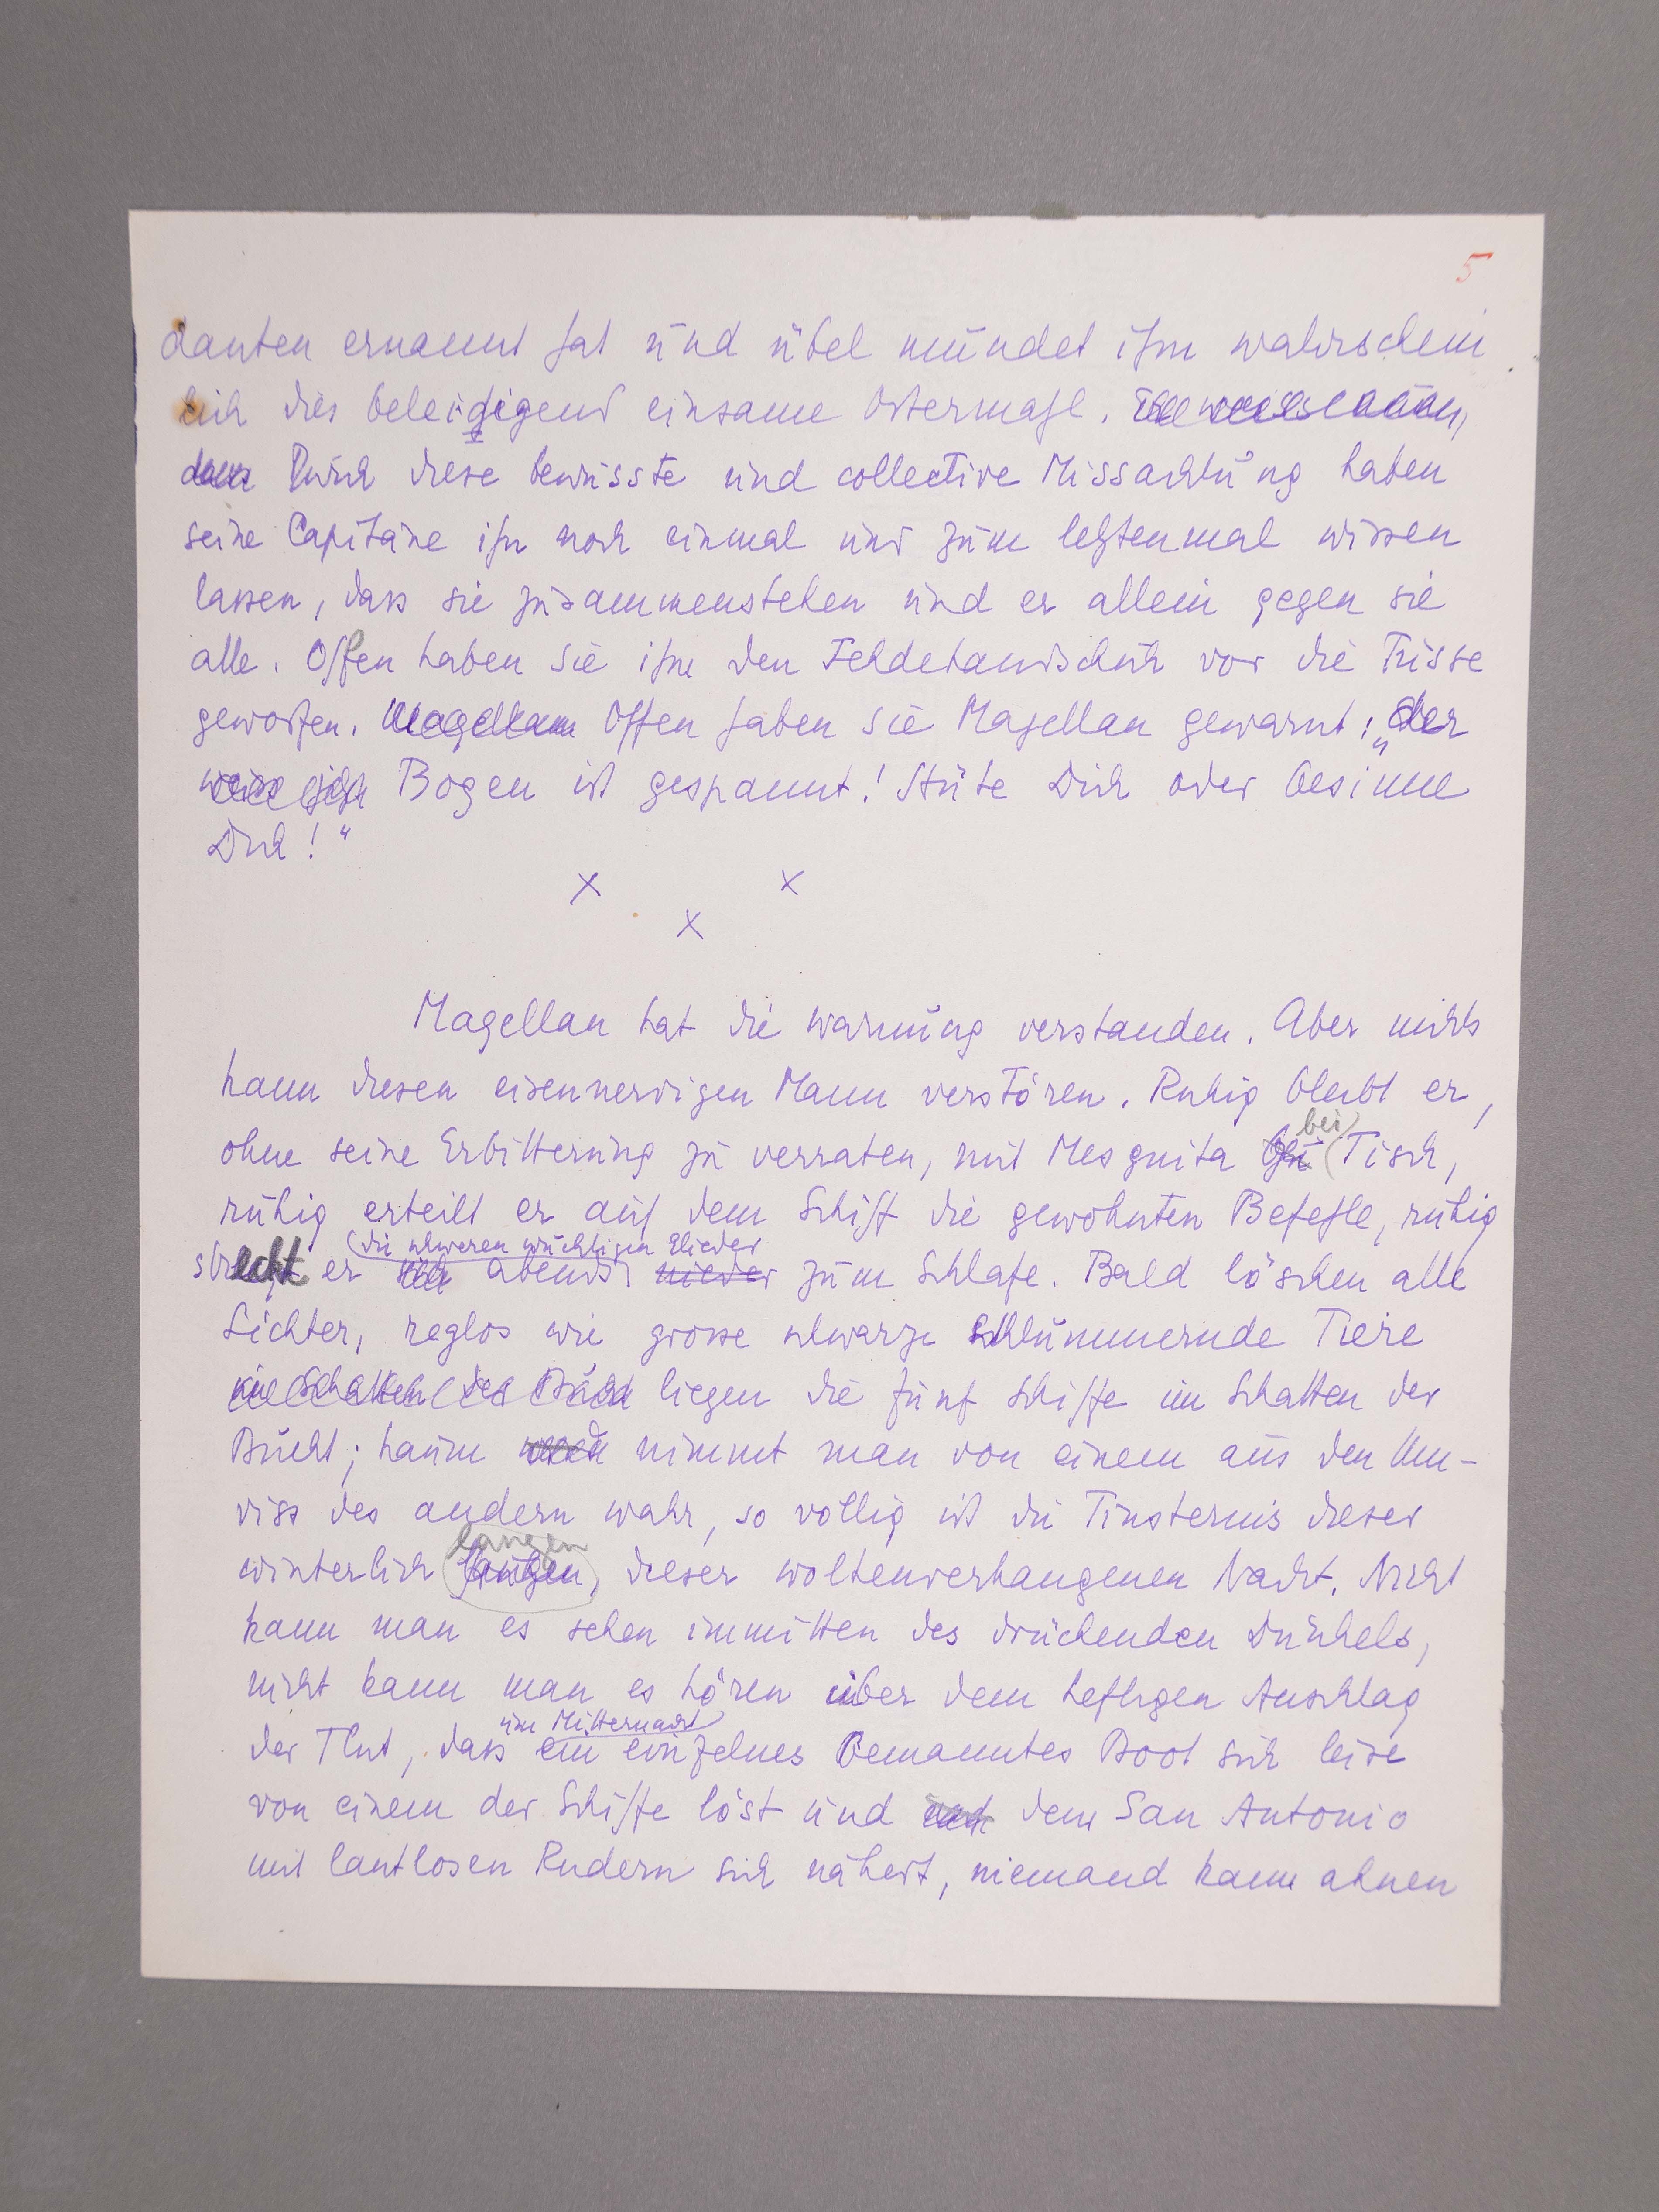 5
danten ernannt hat und übel mundet ihm wahrschein
lich dies beleidigend einsame Ostermahl.
Durch diese bewusste und collective Missachtung haben
seine Capitäne ihn noch einmal und zum letztenmal wissen
lassen, dass sie zusammenstehen und er allein gegen sie
alle. Offen haben sie ihm den Fehdehandschuh vor die Füsse
geworfen. Magellan Offen haben sie Magellan gewarnt: „der
Bogen ist gespannt! Hüte Dich oder besinne
Dich!“
x x
x
Magellan hat die Warnung verstanden. Aber nichts
kann diesen eisennervigen Mann verstören. Ruhig bleibt er,
ohne seine Erbitterung zu verraten, mit Mesquita bei Tisch,
ruhig erteilt er auf dem Schiff die gewohnten Befehle, ruhig
die schweren wuchtigen Glieder
streckt er sich abends nieder zum Schlafe. Bald löschen alle
Lichter, reglos wie grosse schwarze schlummernde Tiere
im Schatten der Bucht liegen die fünf Schiffe im Schatten der
Bucht; kaum nimmt man von einem aus den Um-
riss des andern wahr, so völlig ist die Finsternis dieser
langen
winterlich langen, dieser wolkenverhangenen Nacht. Nicht
kann man es sehen inmitten des drückenden Dunkels,
nicht kann man es hören über dem heftigen Anschlag
um Mitternacht
der Flut, dass ein einzelnes bemanntes Boot sich leise
von einem der Schiffe löst und dem San Antonio
mit lautlosen Rudern sich nähert, niemand kann ahnen